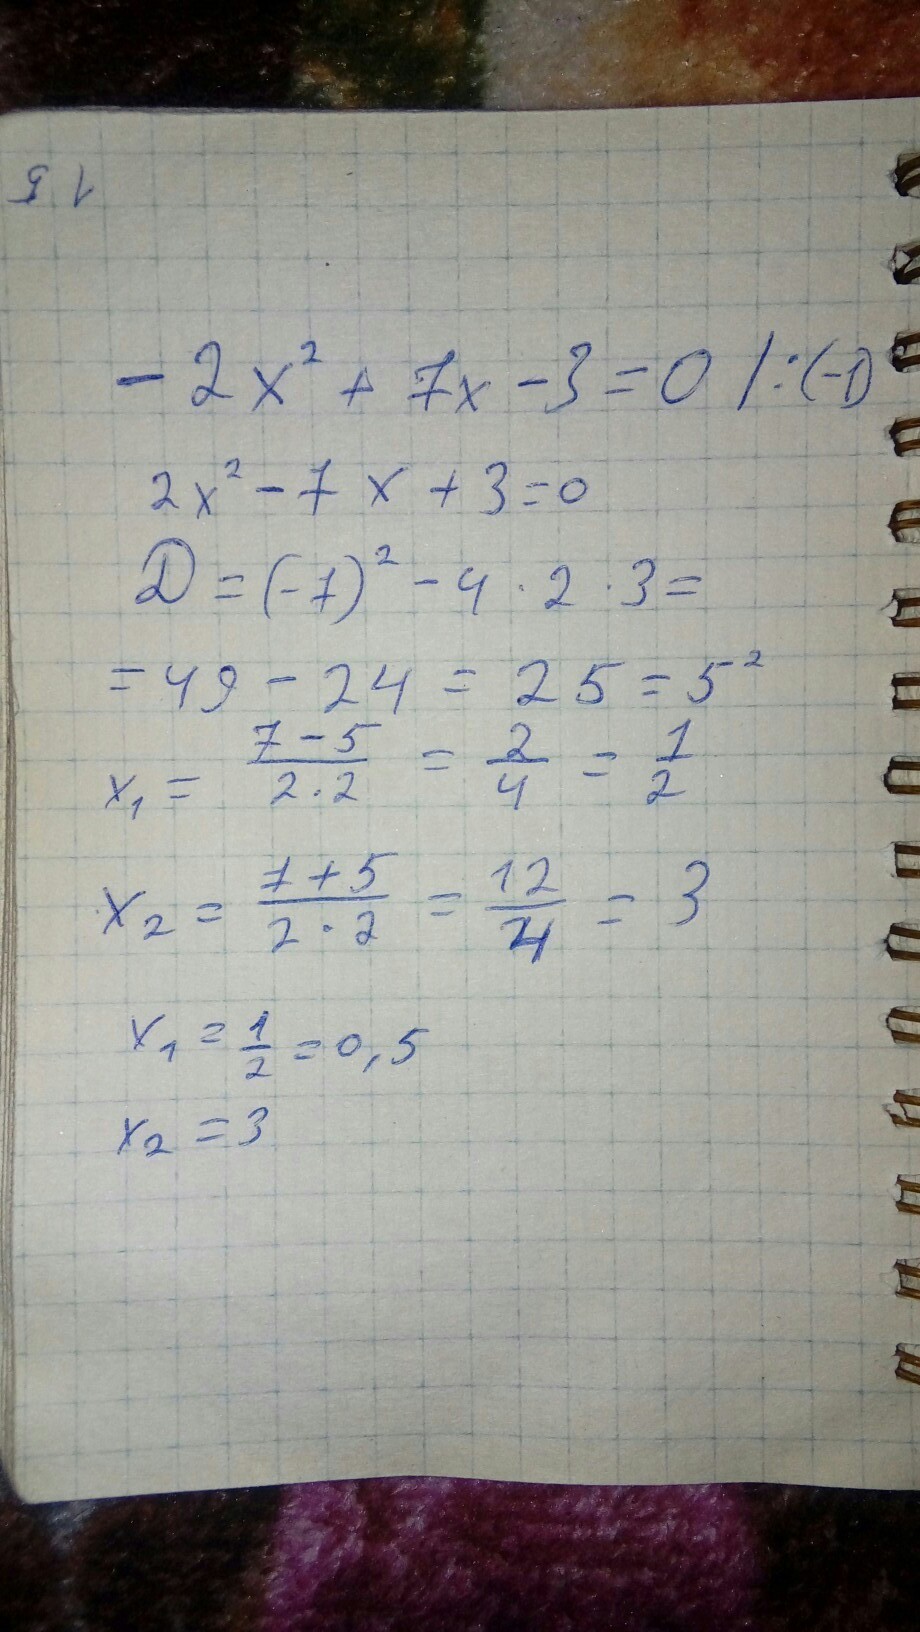 -2x² + 7x - 3 = 0 /:(-1)
2x² - 7x + 3 = 0
D = (-7)² - 4 · 2 · 3 =
= 49 - 24 = 25 = 5²
x₁ = (7 - 5)/(2 · 2) = 2/4 = 1/2
x₂ = (7 + 5)/(2 · 2) = 12/4 = 3
x₁ = 1/2 = 0,5
x₂ = 3